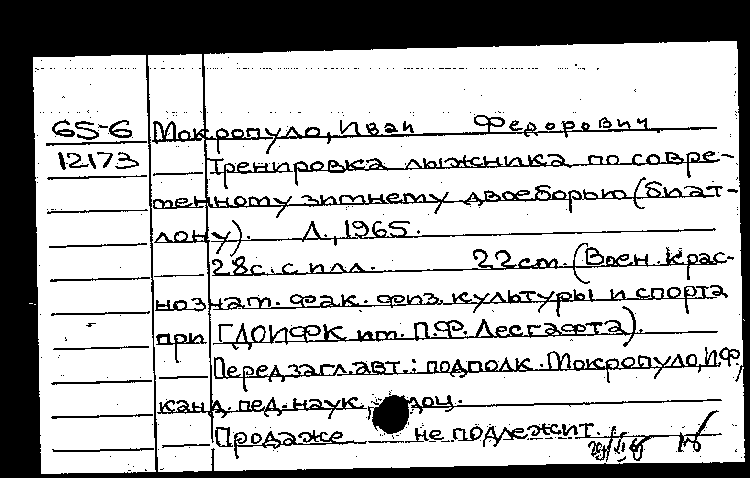 65-6 Мокропуло, Иван Федорович.
12173 Тренировка лыжника по совре-
менному зимнему двоеборью (биат-
лону). Л., 1965.
28с. с илл. 22см. (Воен. Крас-
нознам. фак. физ. культуры и спорта
при ГДОИФК им. П.Ф. Лесгафта).
Перед загл. авт.: подполк. Мокропуло, И.Ф.,
канд. пед. наук, доц.
Продаже не подлежит.